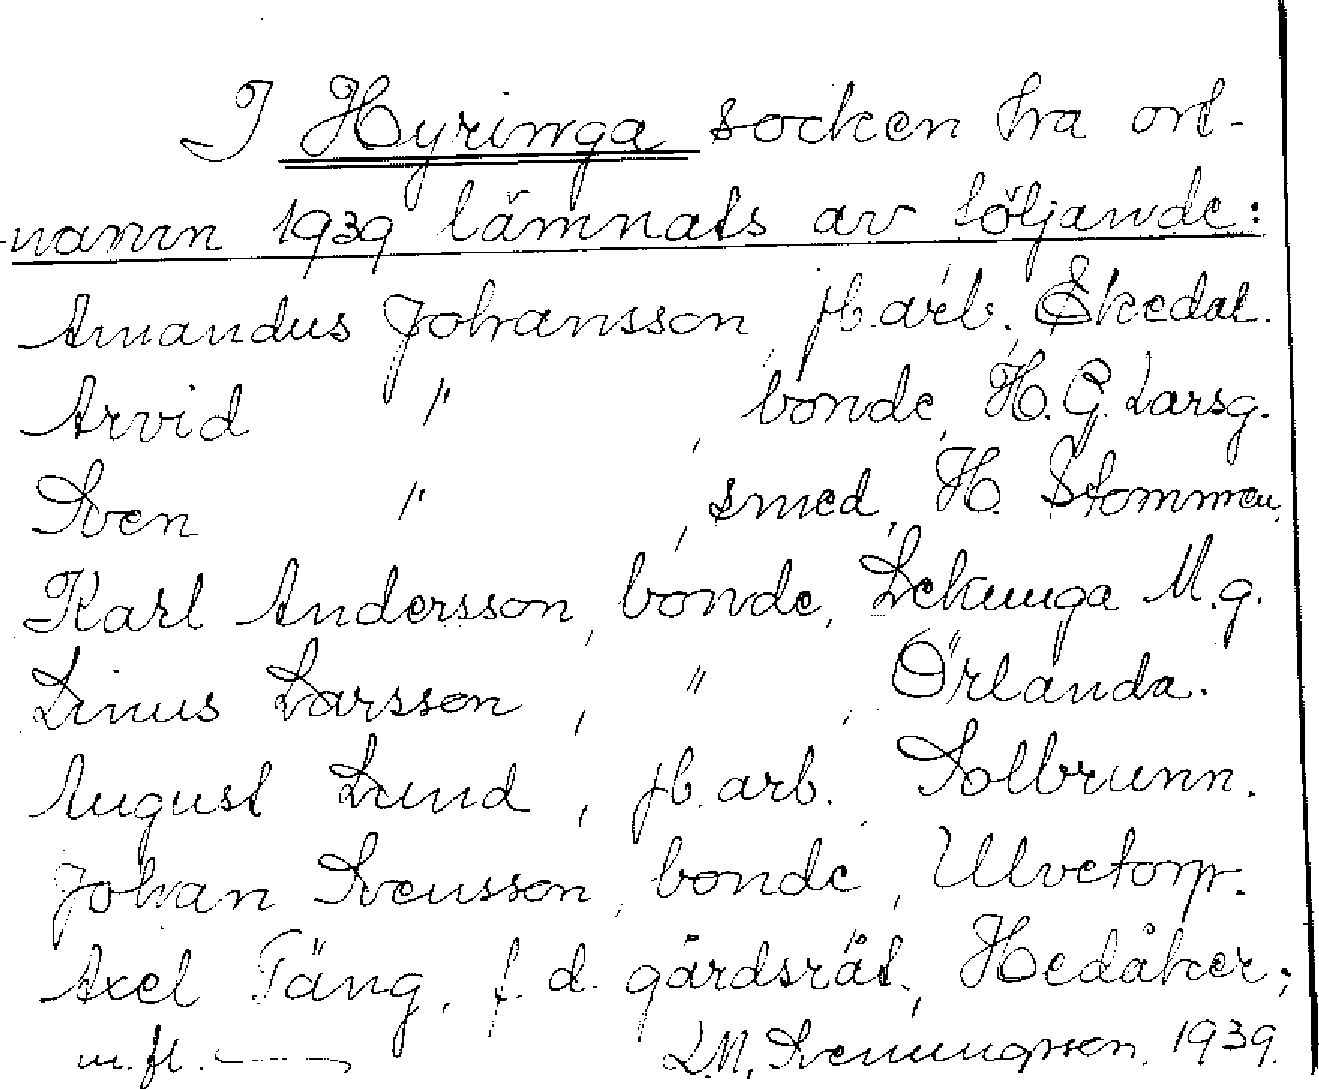 I Hyringa socken ha ort-
namn 1939 lämnats av följande:
Amandus Johansson, jb.arb. Ekedal.
Arvid " , bonde, H. G. Larsg.
Sven " , smed, H. Stommen.
Karl Andersson, bonde, Lekunga M.g.
Linus Larsson, " , Örlanda.
August Lund, jb. arb. Solbrunn.
Johan Svensson, bonde, Ulvetorp.
Axel Täng, f. d. gårdsrät., Hedåker;
m. fl.
L.M. Svenungsson. 1939.